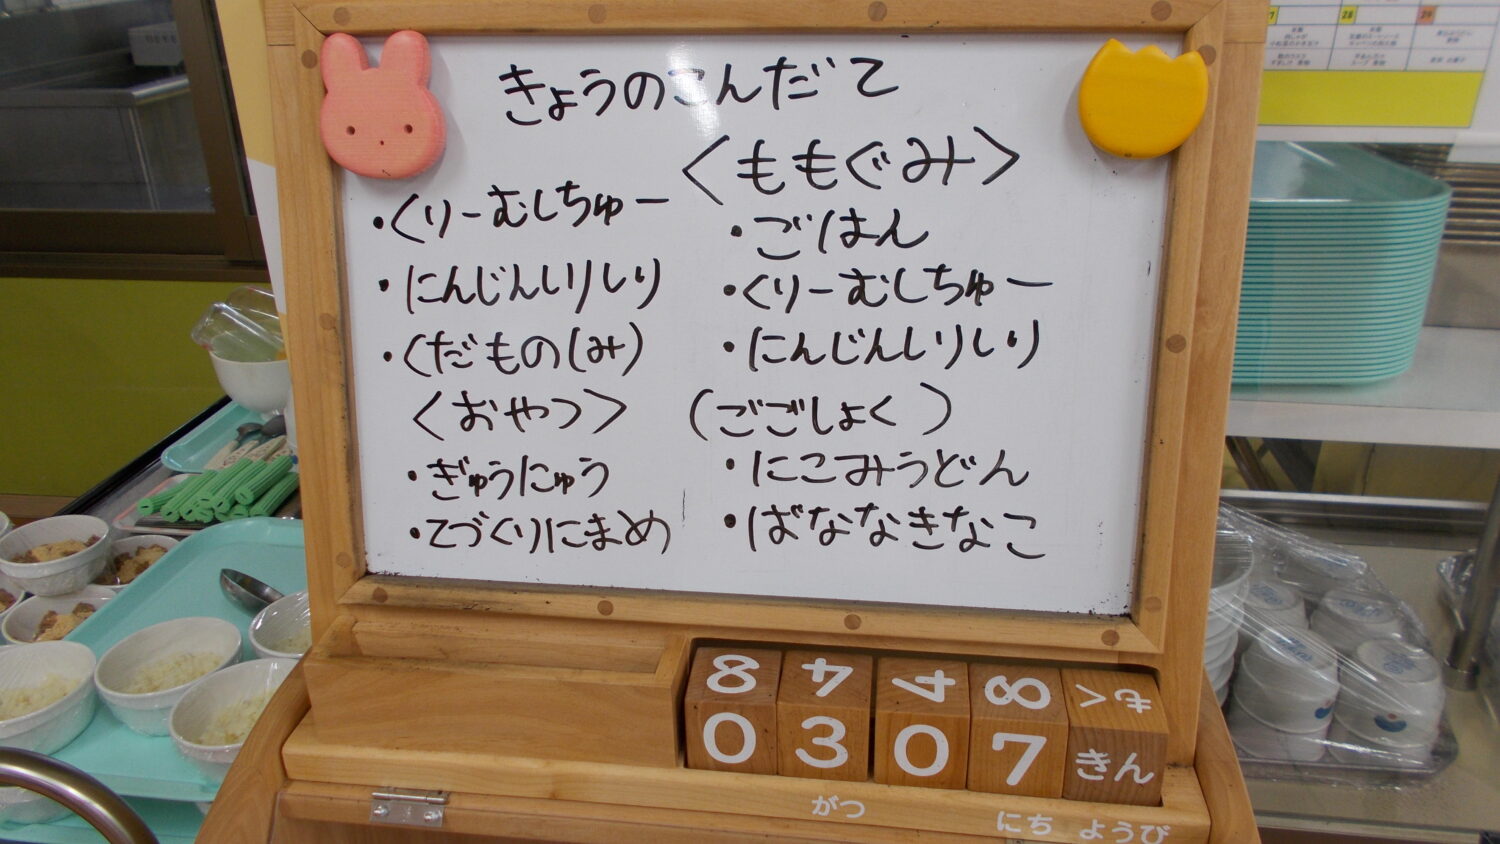 きょうのこんだて
・くりーむしちゅー
・にんじんしりしり
・くだもの(みかん)
<おやつ>
・ぎゅうにゅう
・てづくりにまめ
<ももぐみ>
・ごはん
・くりーむしちゅー
・にんじんしりしり
(ごごしょく)
・にこみうどん
・ばななきなこ
8 4 4 8 もく
0 3 0 7 きん
がつ にち ようび
28